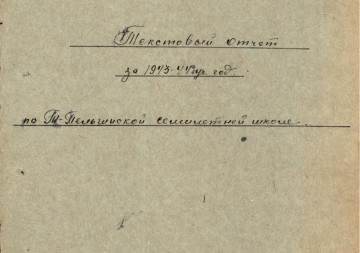 Текстовый отчет
за 1943-44 уч. год.
по Т-Пельгинской семилетней школе.